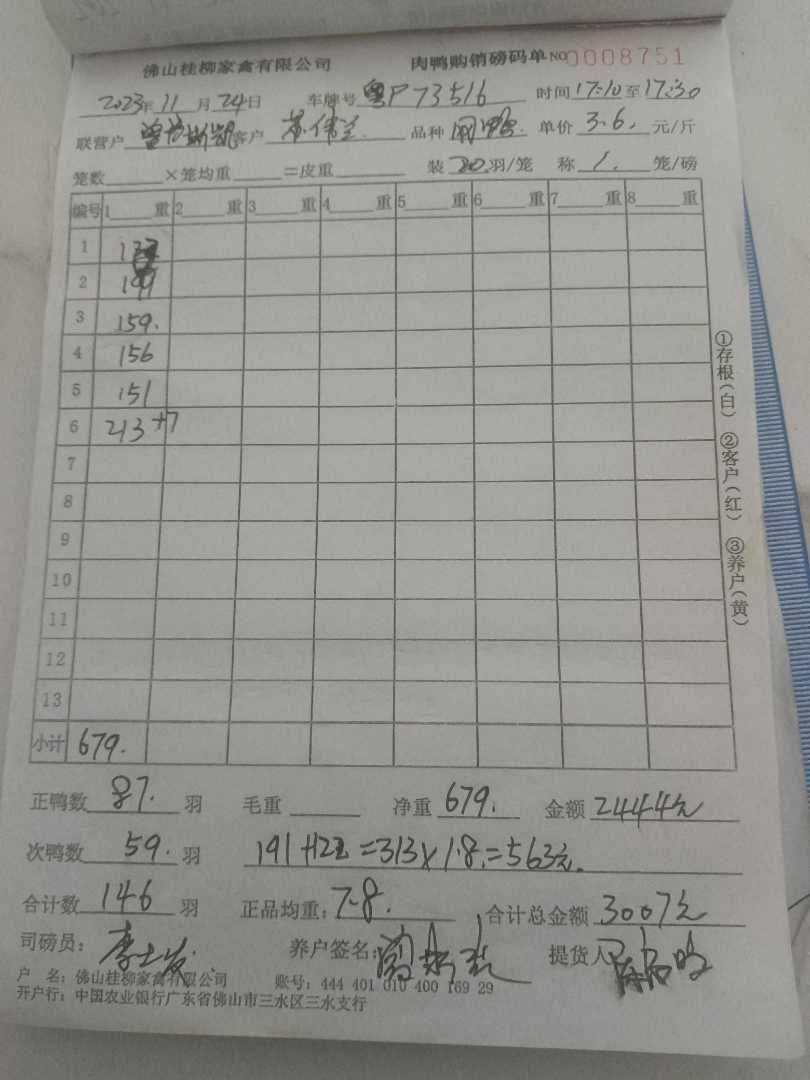 佛山桂柳家禽有限公司 肉鸭购销磅码单 NO 0008751
2023年 11月 24日 车牌号 粤P73516 时间 17:10 至 17:30
联营户 客户 品种 单价 3.6. 元/斤
笼数 ×笼均重 =皮重 装 20. 羽/笼 称 1. 笼/磅
编号 1 重 2 重 3 重 4 重 5 重 6 重 7 重 8 重
1
2
3 159.
4 156
5 151
6 213+7
7
8
9
10
11
12
13
小计 679.
①存根(白) ②客户(红) ③养户(黄)
正鸭数 87. 羽 毛重 净重 679. 金额 2444元
次鸭数 59. 羽 191+122=313×1.8.=563元.
合计数 146 羽 正品均重: 7-8. 合计总金额 3007元
司磅员: 养户签名: 提货人
户 名: 佛山桂柳家禽有限公司 账号: 444 401 010 400 169 29
开户行: 中国农业银行广东省佛山市三水区三水支行